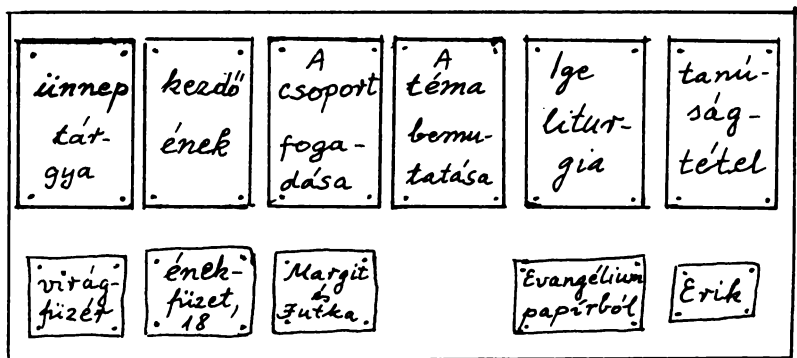 ünnep
tár-
gya
kezdő
ének
A
csoport
foga-
dása
A
téma
bemu-
tatása
Ige
litur-
gia
tanú-
ság-
tétel
virág-
füzér
ének-
füzet,
18
Margit
és
Jutka
Evangélium
papírból
Erik